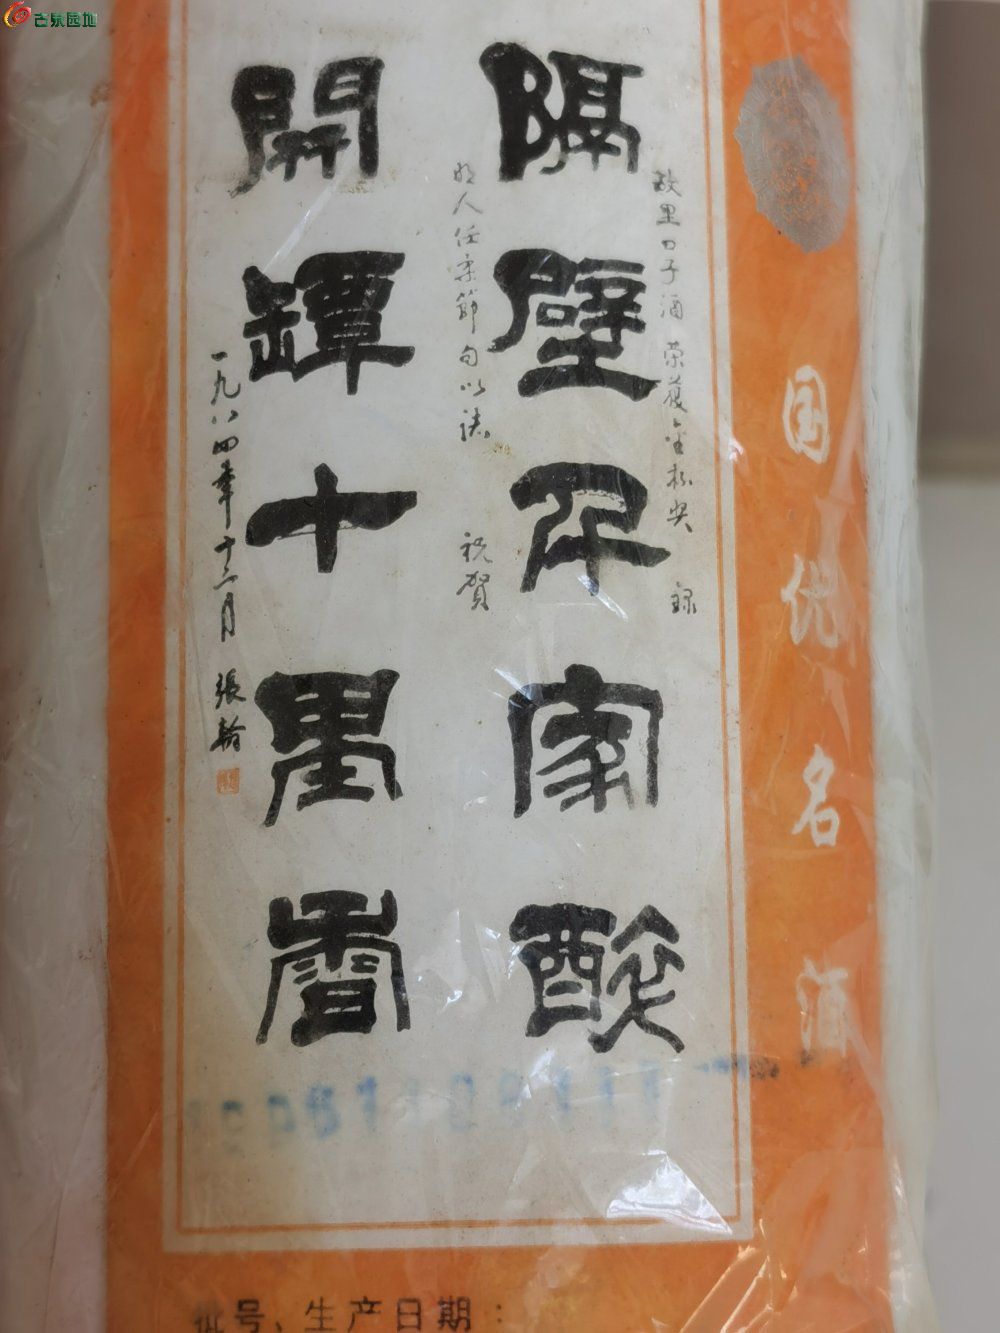 古泉园地
国优名酒
故里口子酒荣获金杯奖 録
隔壁千家醉
明人任柔節句以誌 祝賀
開罈十里香
一九八四年十二月 張翰
批号、生产日期：